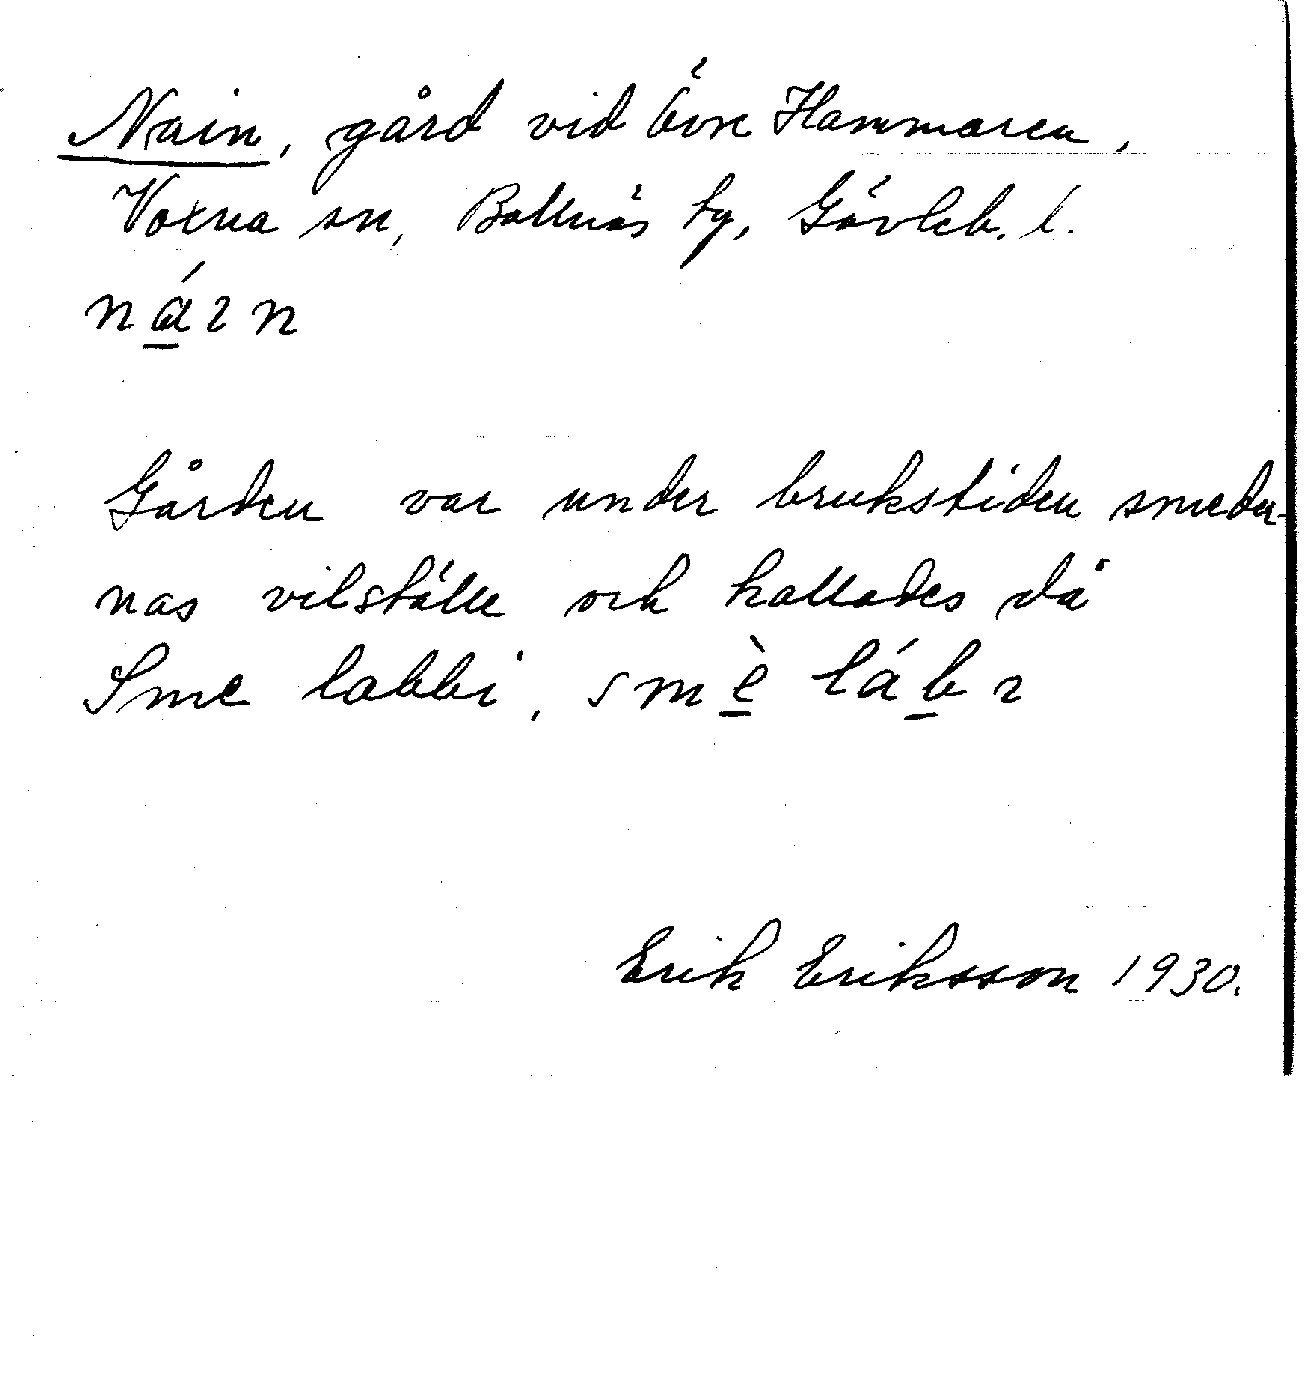 Nain, gård vid Övre Hammaren,
Voxna sn, Bollnäs tg, Gävleb. l.
náın
Gården var under brukstiden smeder-
nas vilställe och kallades då
Sme labbi, smè lábı
Erik Eriksson 1930.